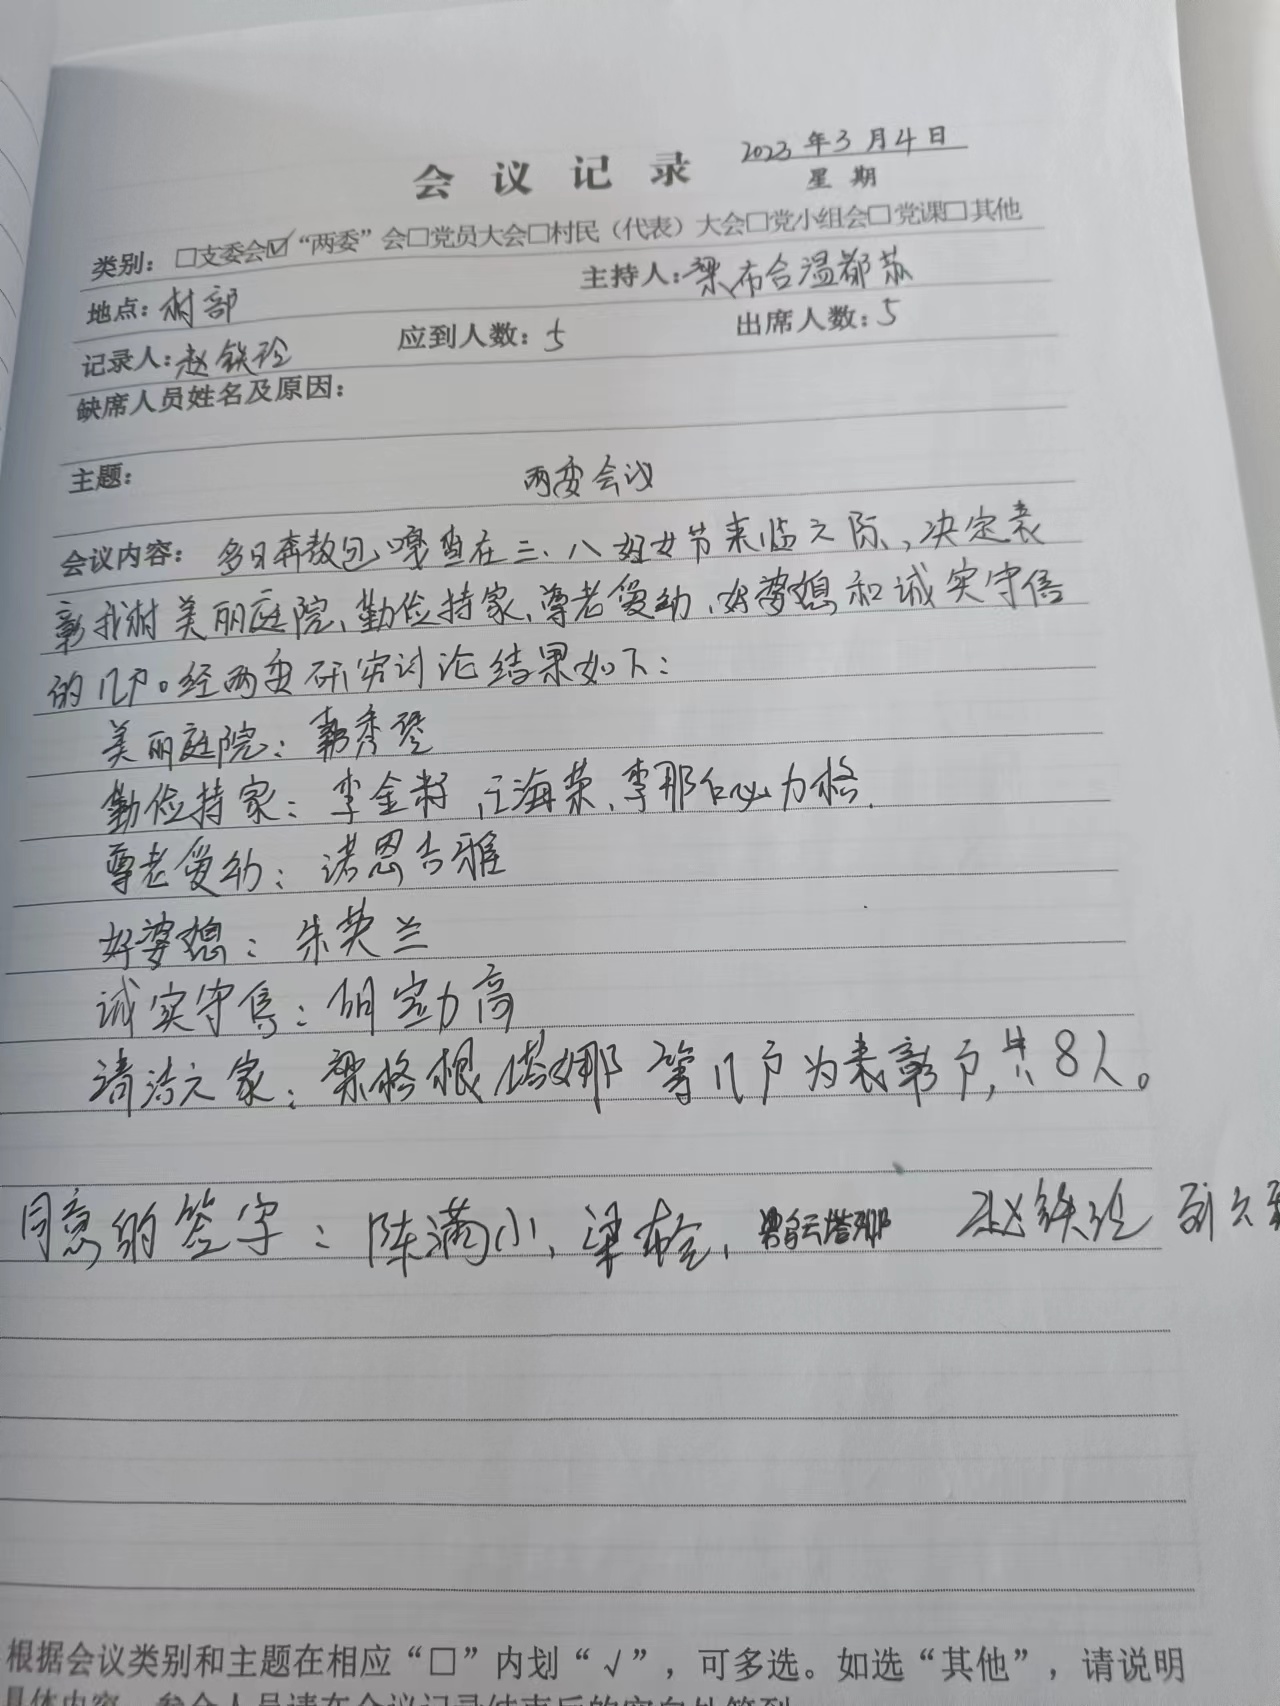 会议记录 2023年3月4日
星期
类别：□支委会☑“两委”会□党员大会□村民（代表）大会□党小组会□党课□其他
地点：村部 主持人：梁布合温都苏
记录人：赵铁玲 应到人数：5 出席人数：5
缺席人员姓名及原因：
主题： 两委会议
会议内容：多日奔敖包嘎查在三、八妇女节来临之际，决定表
彰我村美丽庭院、勤俭持家、尊老爱幼、好婆媳和诚实守信
的几户。经两委研究讨论结果如下：
美丽庭院：韩秀琴
勤俭持家：李金籽、王海荣、李那仁必力格.
尊老爱幼：诺恩吉雅
好婆媳：朱英兰
诚实守信：胡宝力高
清洁之家：梁格根塔娜等几户为表彰户，共8人。
同意的签字：陈满小、梁 赵铁玲
根据会议类别和主题在相应“□”内划“√”，可多选。如选“其他”，请说明
具体内容。参会人员请在会议记录结束后的空白处签到